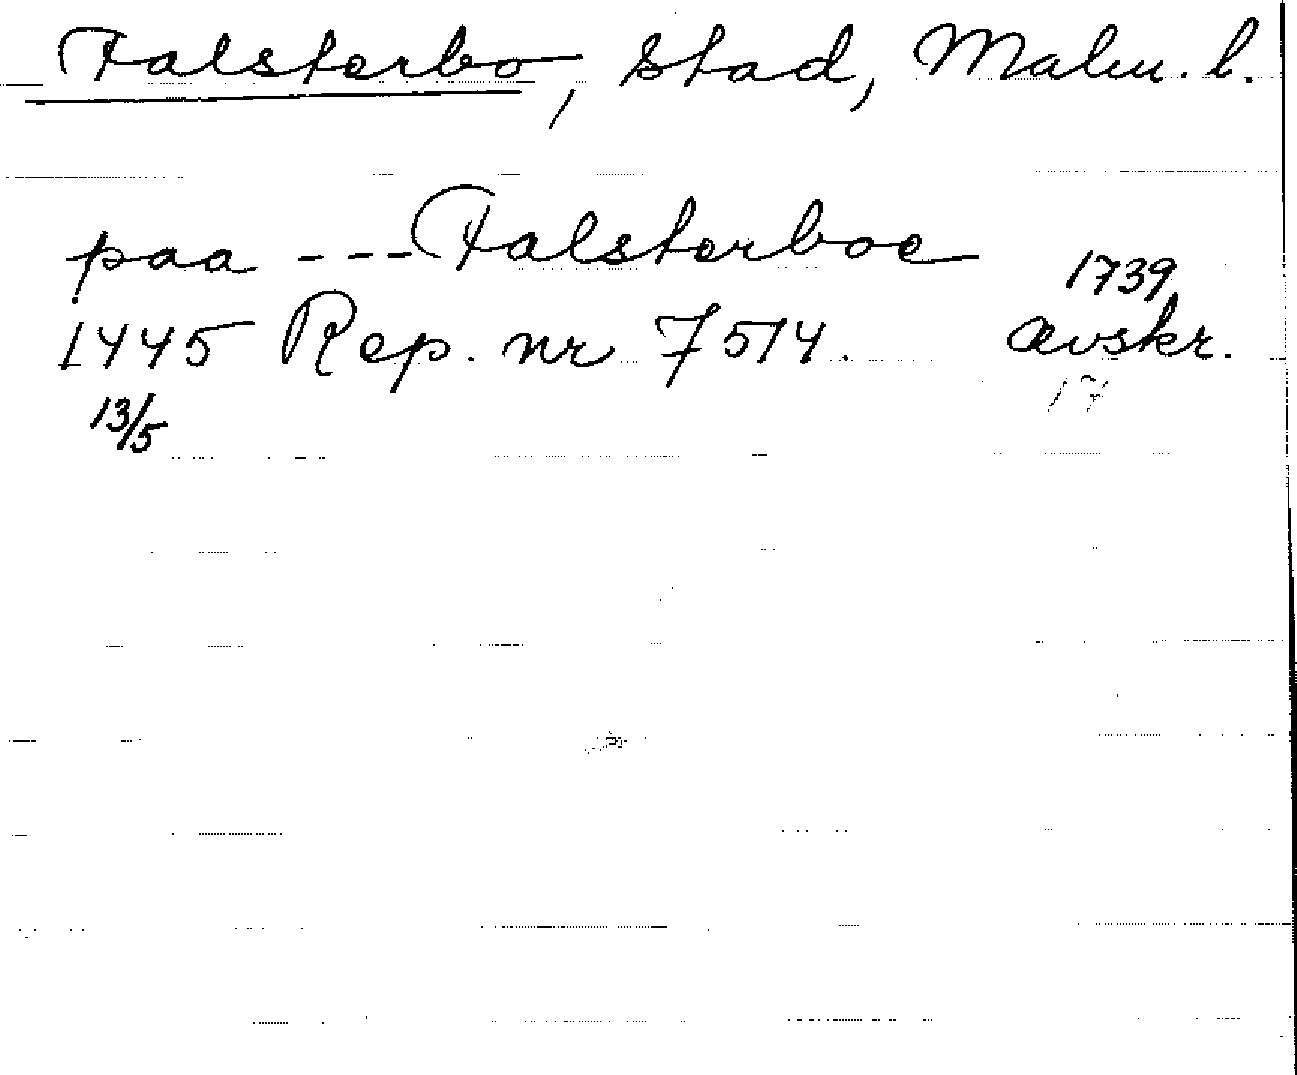 Falsterbo, Stad, Malm. l.
paa --- Falsterboe
1445 Rep. nr 7514. 1739 avskr.
13/5 17